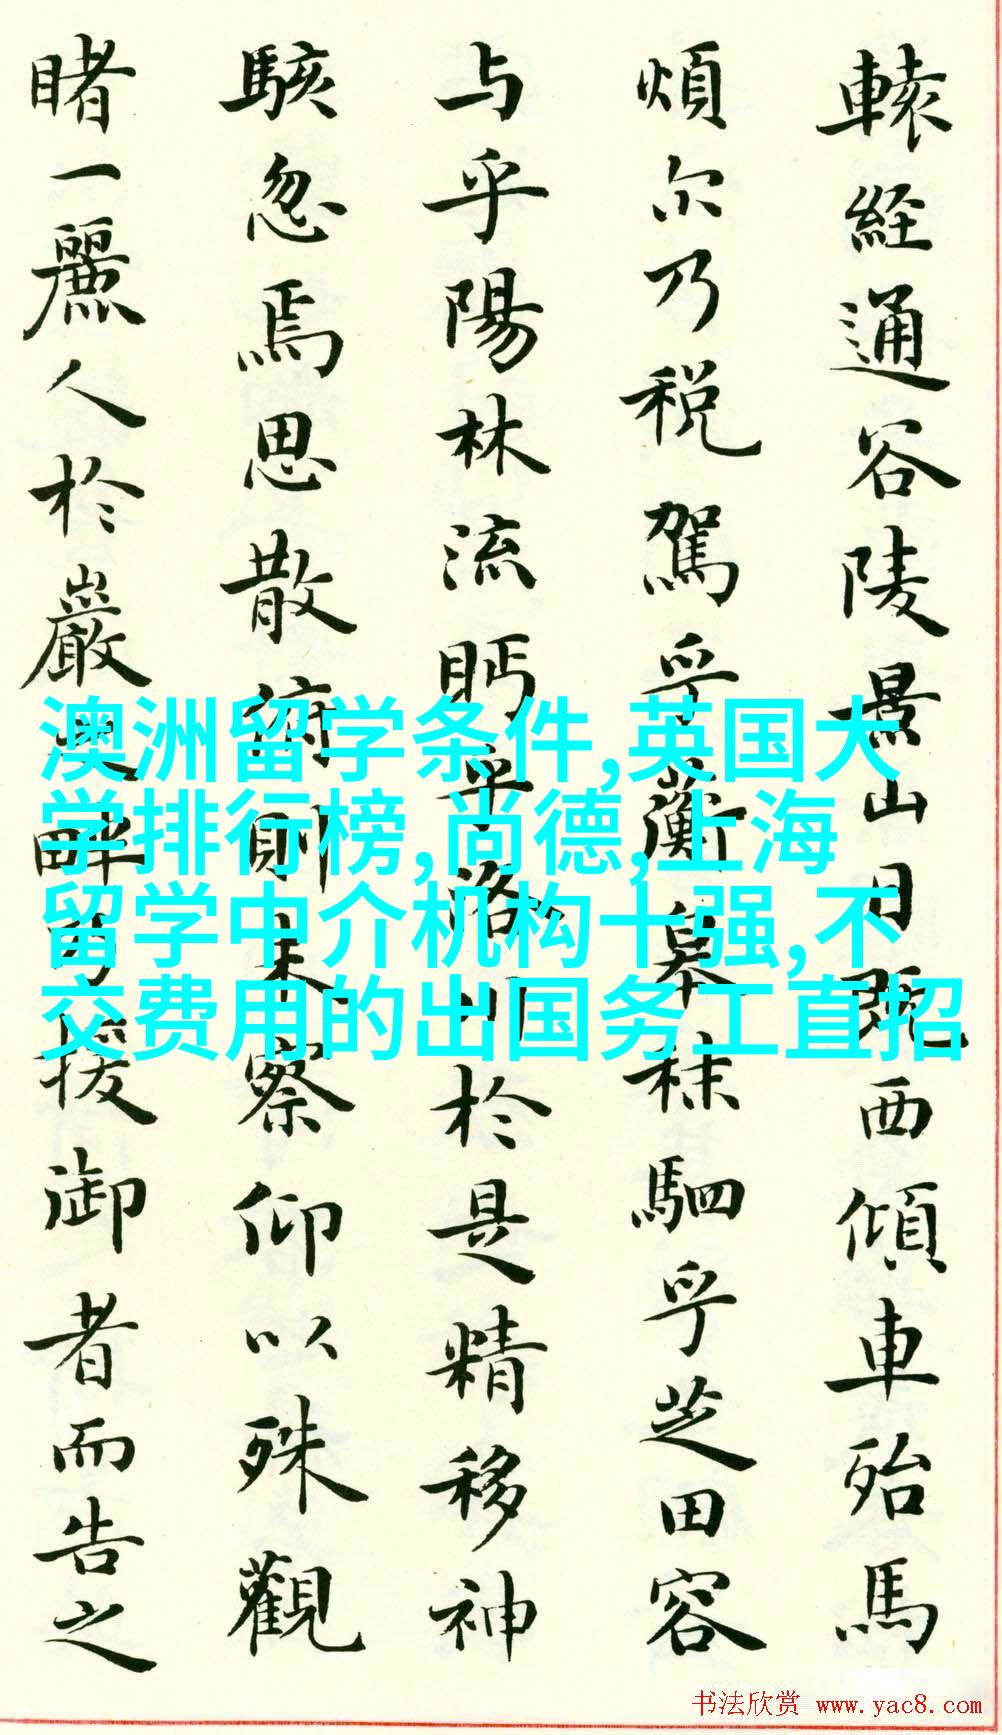 轅経通谷陵景山日既西傾車殆馬
煩尔乃税駕乎蘅皋秣駟乎芝田容
与乎陽林流眄乎洛川於是精移神
駭忽焉思散俯則未察仰以殊觀
睹一麗人於巖畔乃援御者而告之
澳洲留学条件,英国大
学排行榜,尚德,上海
留学中介机构十强,不
交费用的出国务工直招
书法欣赏 www.yac8.com